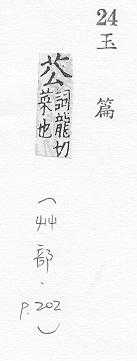 24
玉篇
詞龍切
菜也
(艸部.p.202)